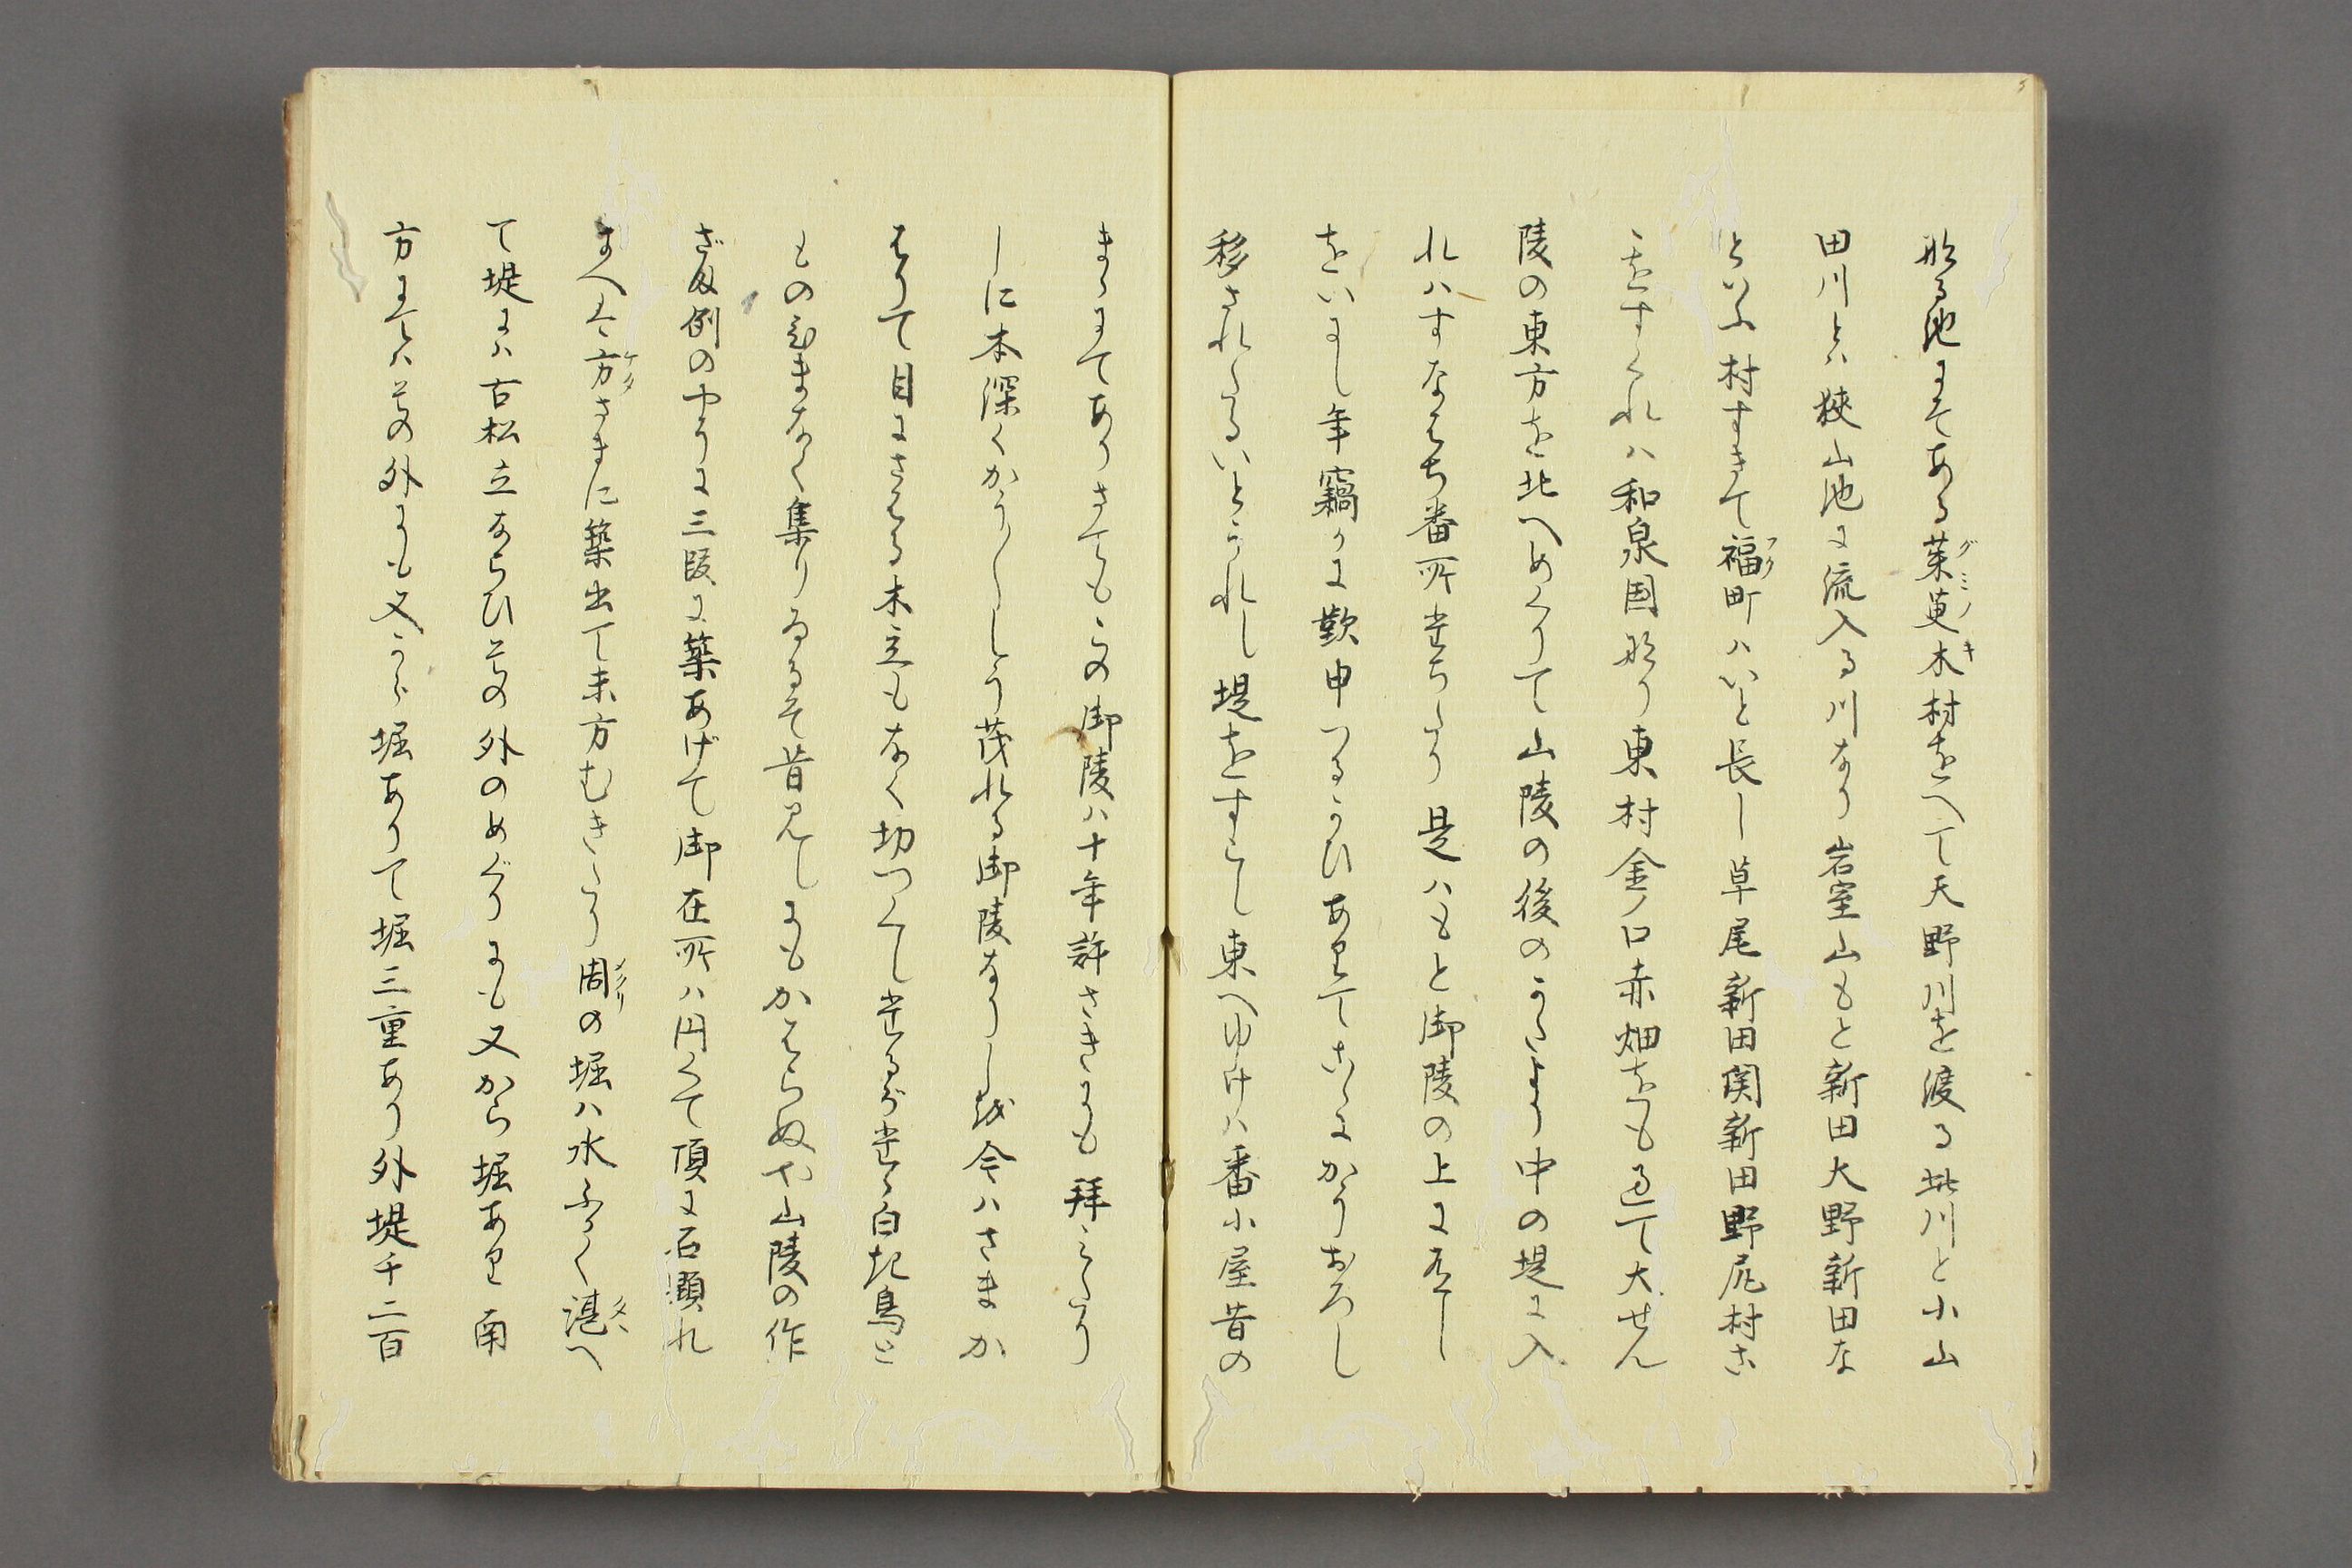 なる池にてある茱萸木村をへて天野川を渡る此川と小山
田川とハ狭山池に流入る川なり岩室山もと新田大野新田な
といふ村すきて福町ハいと長し草尾新田関新田野尻村こ
こをすくれハ和泉国なり東村金ノ口赤畑をも過て大せん
陵の東方を北へめくりて山陵の後のかたより中の堤に入
れハすなはち番所たちたり是ハもと御陵の上に有し
をいにし年竊かに歎申つるかひありてこゝにかりおろし
移されたるいとうれし堤をすこし東へゆけハ番小屋昔の
まゝにてありさてもこの御陵ハ十年許さきにも拝みたり
しに木深くかう〳〵しう茂れる御陵なりし越今ハさまか
はりて目にさはる木立もなく切つくしたるがたゝ白き鳥と
もの ひまなく集りゐるそ昔見しにもかはらぬや山陵の作
ざま例のやうに三段に築あげて御在所ハ円くて頂に石顕れ
まへは方さまに築出て未方むきたり周の堀ハ水ふかく湛へ
て堤にハ古松立ならひその外のめぐりにも又から堀あり南
方にてハその外にも又から堀ありて堀三重あり外堤千二百
グミノキ
フク
ケタ
メクリ
タヽ